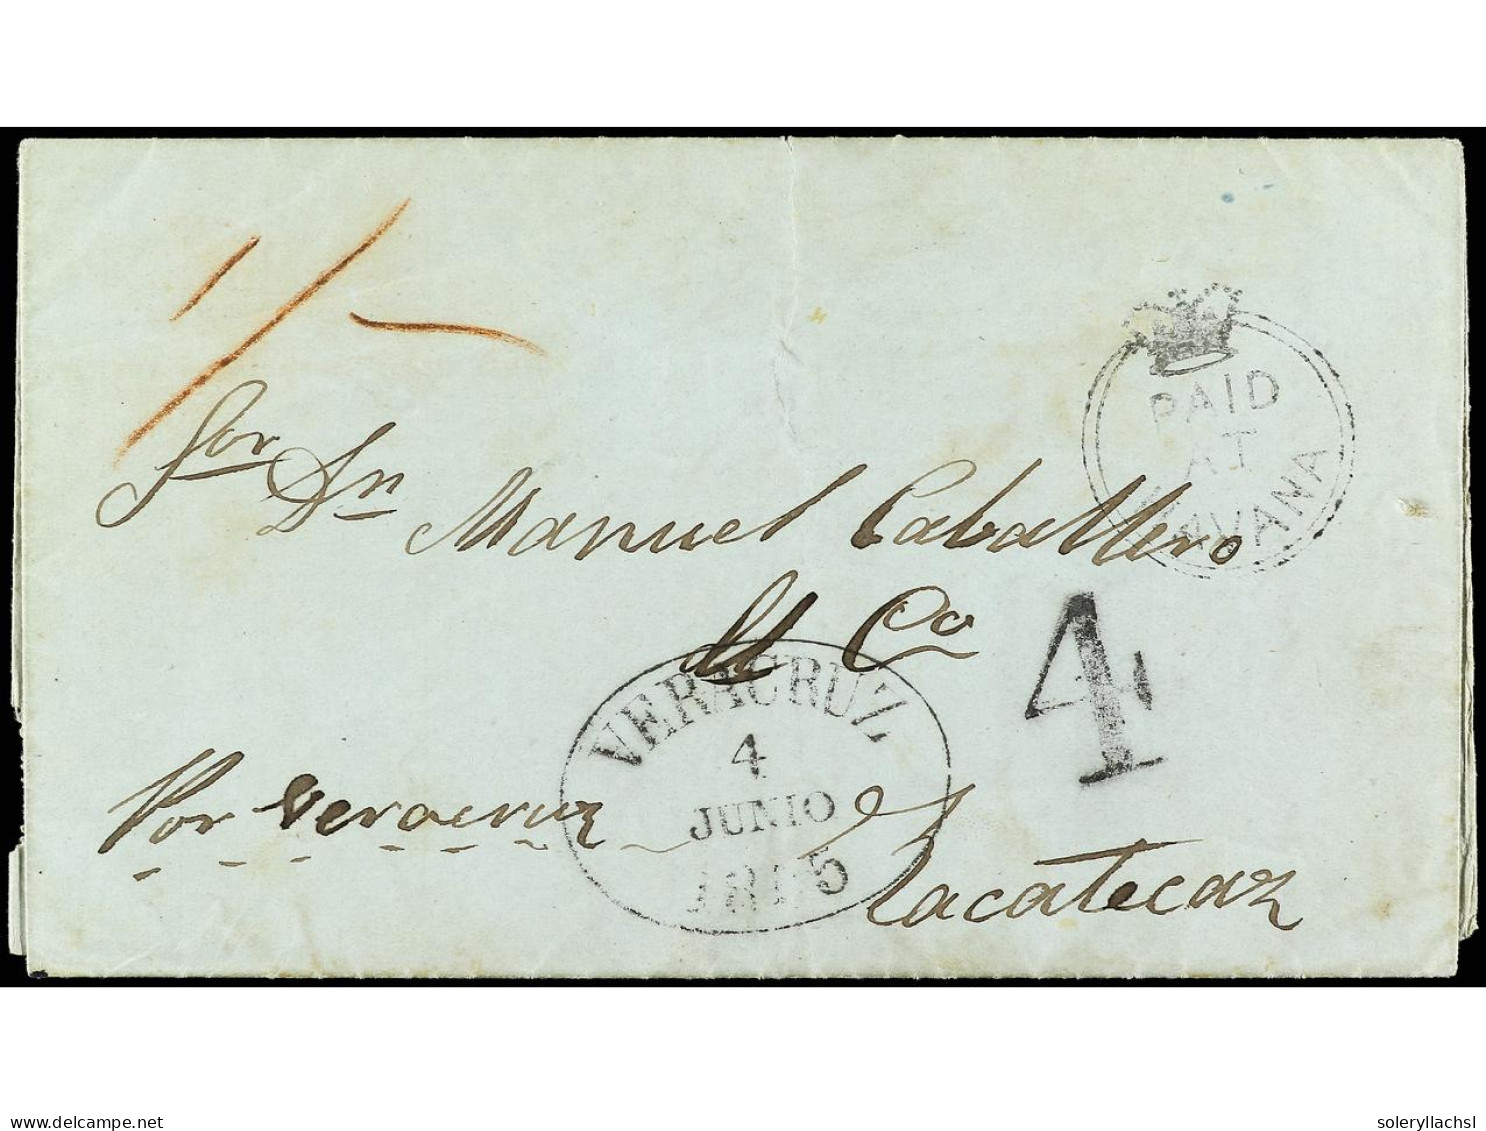 1/-
PAID
AT
HAVANA
Sor Dn Manuel Caballero
y Co
4
VERACRUZ
4
JUNIO
5
Por Veracruz
Zacatecaz
delcampe.net
soleryllachsl